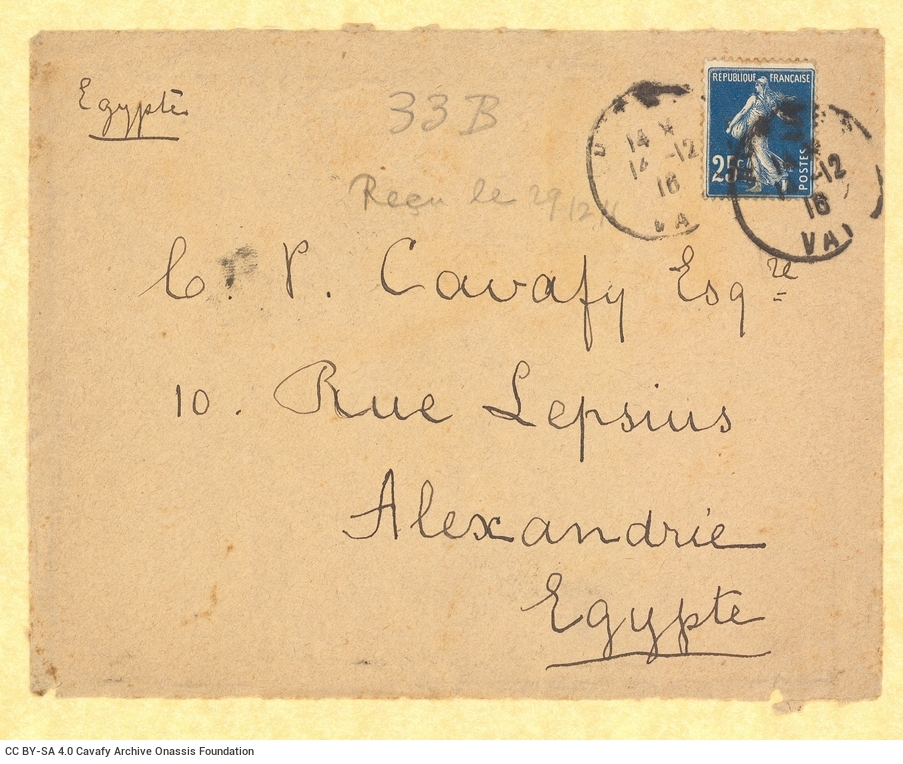 Egypte
33 B
Reçu le 29/12/
RÉPUBLIQUE FRANÇAISE
25c
POSTES
14 *
-12
16
VA
14 *
-12
16
VAI
C. P. Cavafy Esqre
10. Rue Lepsius
Alexandrie
Egypte
CC BY-SA 4.0 Cavafy Archive Onassis Foundation